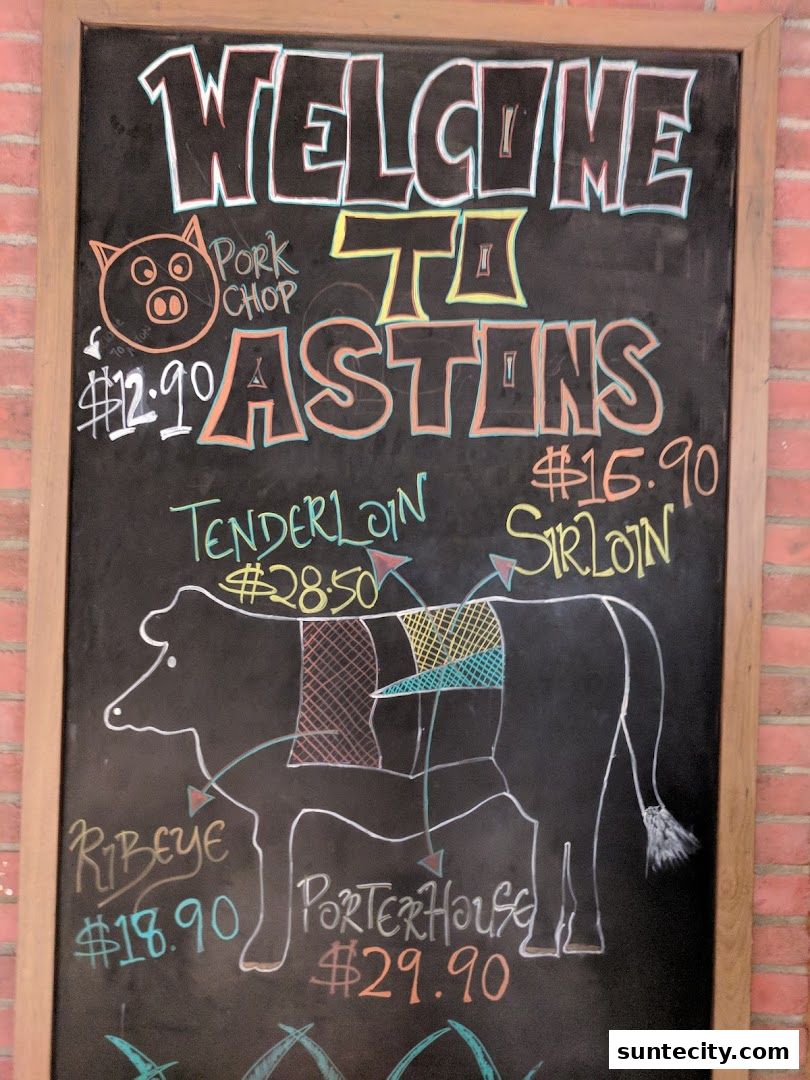 WELCOME
TO
ASTONS
PORK
CHOP
$12.90
$16.90
SIRLOIN
TENDERLOIN
$28.50
RIBEYE
$18.90
PORTERHOUSE
$29.90
suntecity.com